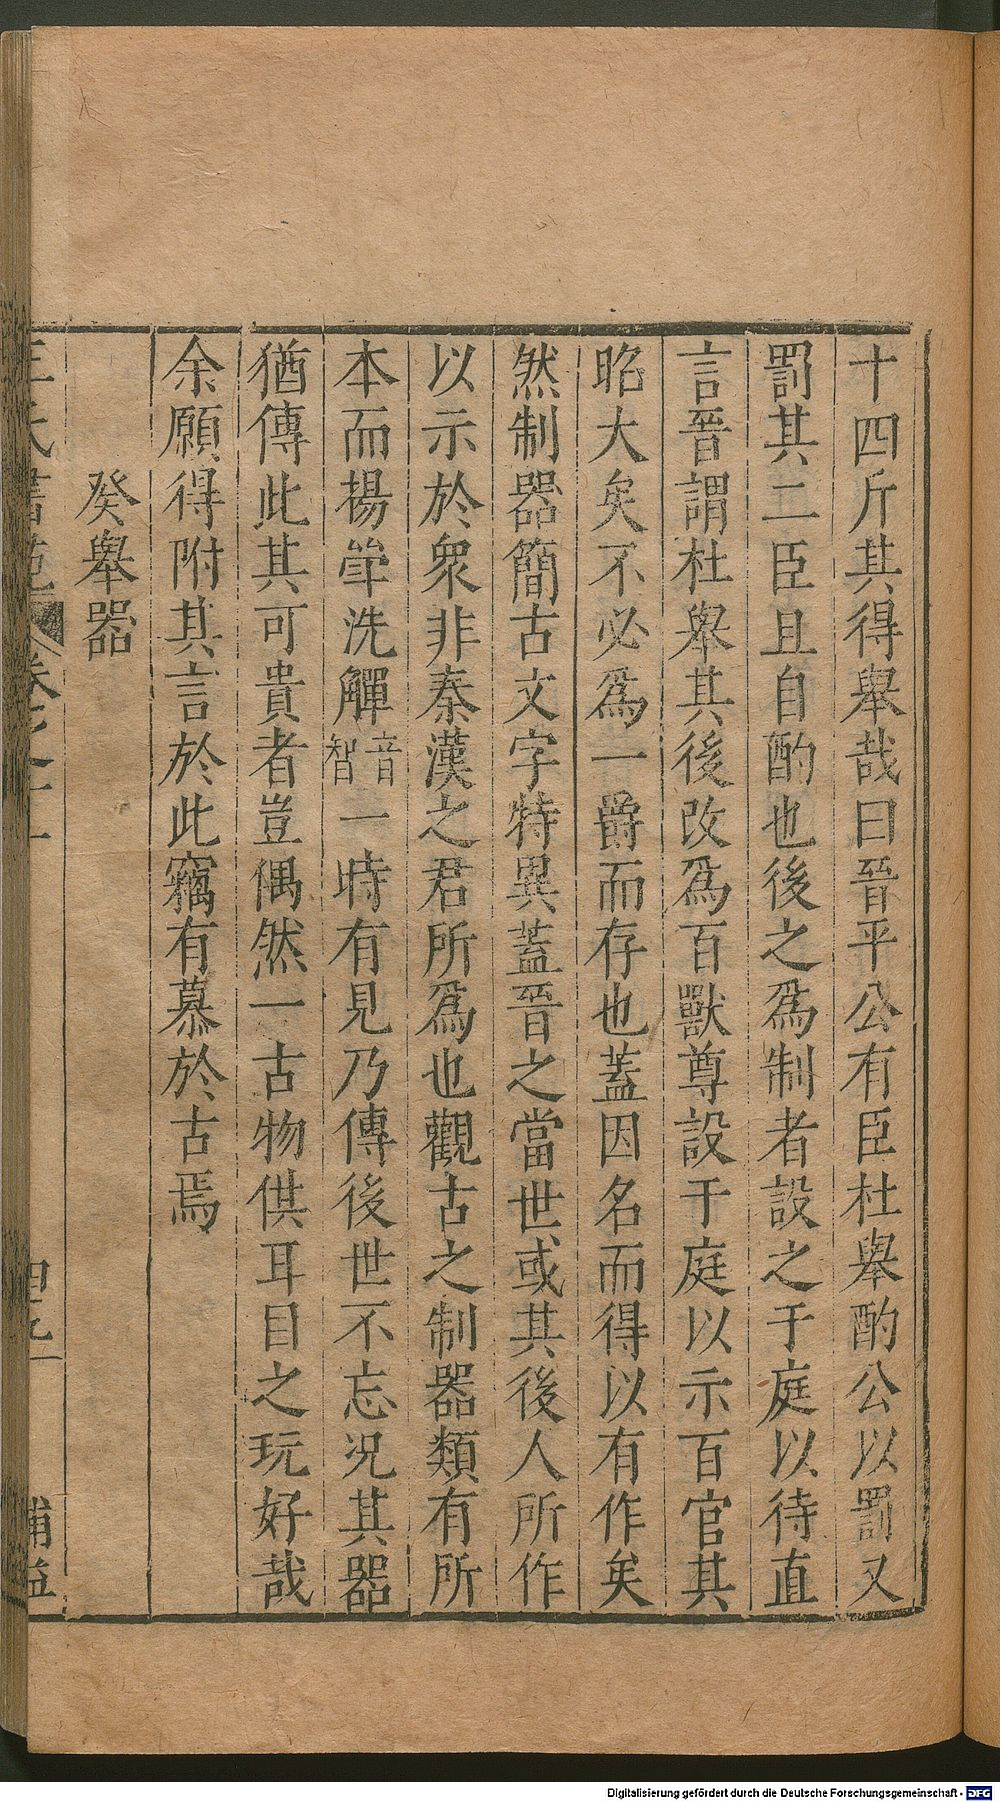 十四斤其得舉哉曰晉平公有臣杜舉酌公以罰又
罰其二臣且自酌也後之爲制者設之于庭以待直
言晉謂杜舉其後改爲百獸尊設于庭以示百官其
昭大矣不必爲一爵而存也蓋因名而得以有作矣
然制器簡古文字特異蓋晉之當世或其後人所作
以示於衆非秦漢之君所爲也觀古之制器類有所
本而揚斝洗觶音智一時有見乃傳後世不忘況其器
猶傳此其可貴者豈偶然一古物供耳目之玩好哉
余願得附其言於此竊有慕於古焉
癸舉器
王氏書苑 卷之十一
補益
Digitalisierung gefördert durch die Deutsche Forschungsgemeinschaft - DFG